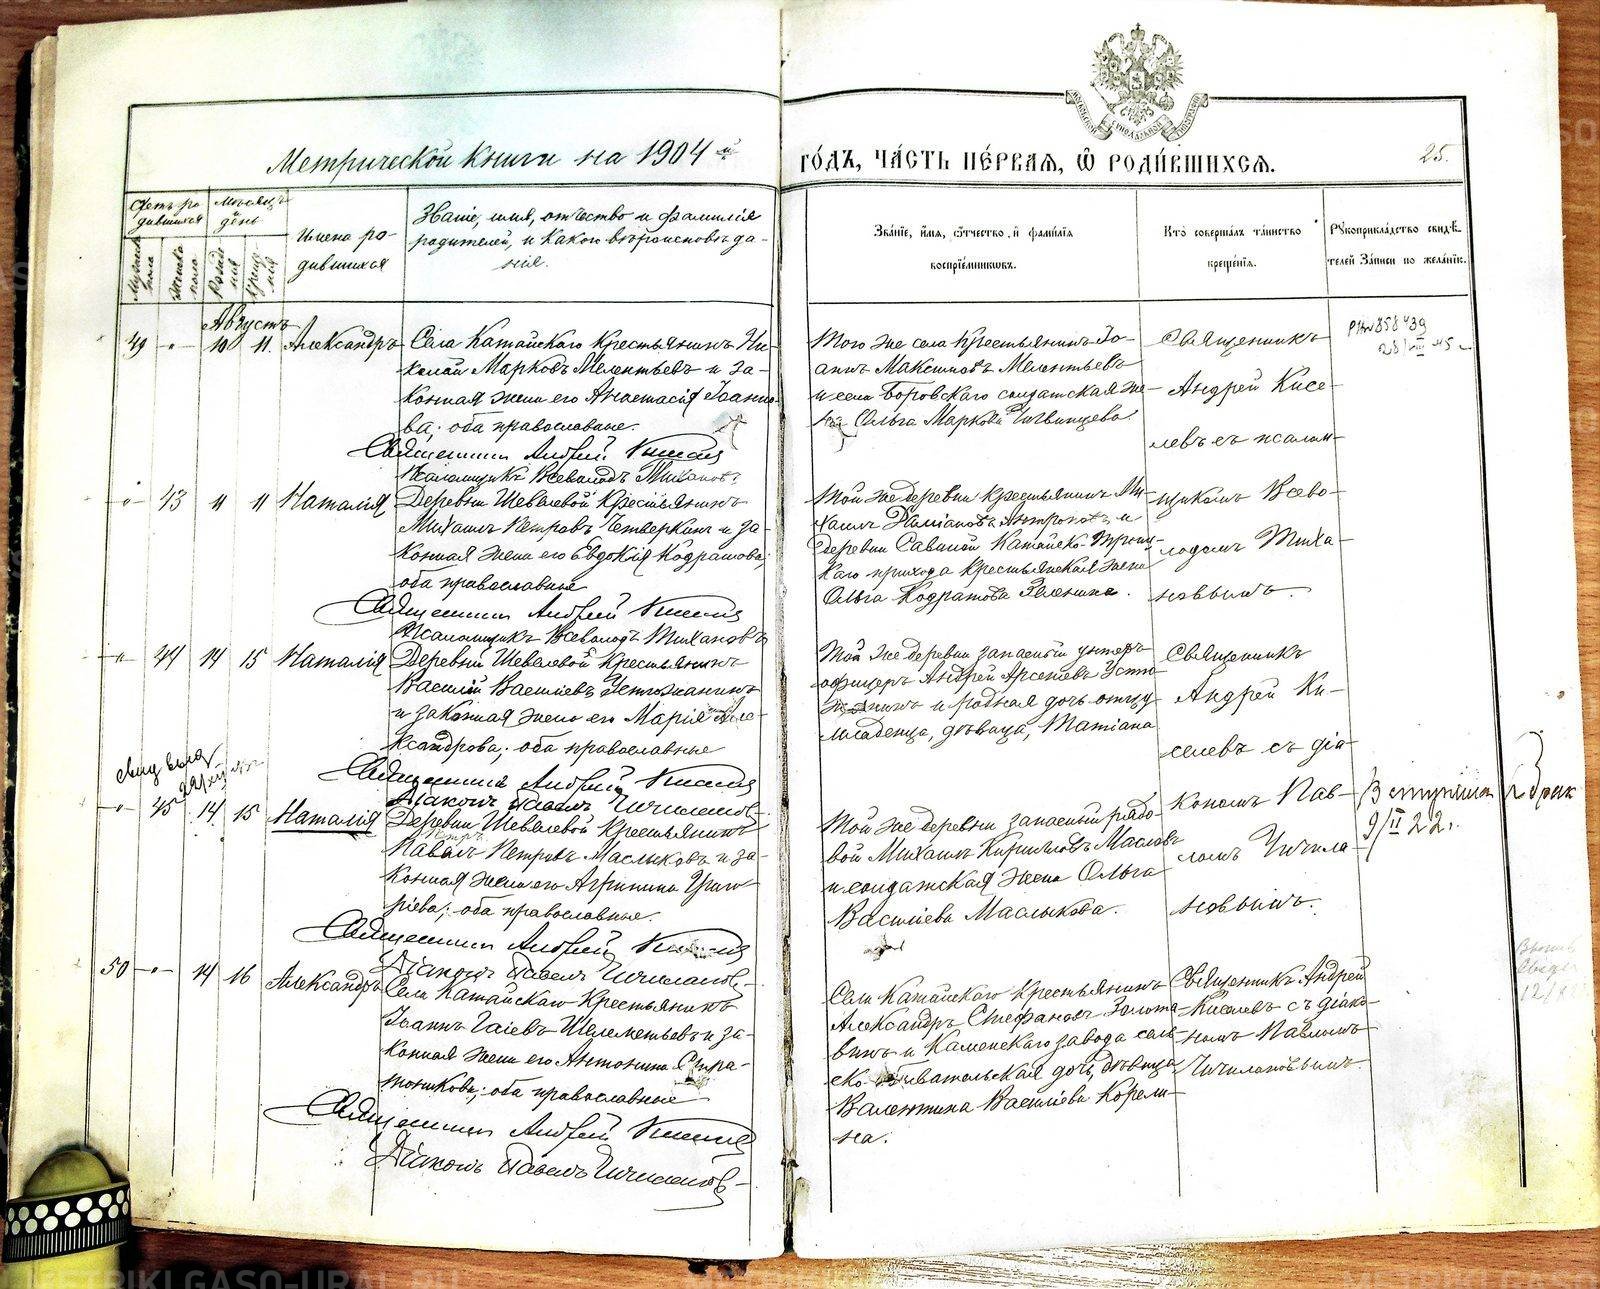 Метрической книги на 1904 й
го́дъ, ча́сть пе́рвая, ѡ҆ роди́вшихся.
25.
Счетъ ро-
дившихся
Мѣсяцъ
день
Мужска
пола
Женска
пола
Рожде
нія
Креще
нія
Имена ро-
дившихся
Званіе, имя, отчество и фамилія
родителей, и какого вѣроисповѣда-
нія.
Зва́ніе, и҆́мя, ѻ҆́тчество, и҆ фами́лія
воспрїе́мниковъ.
Кто̀ соверша́лъ та́инство
креще́нія.
Рꙋкоприкла́дство свидѣ́-
телей За́писи по жела́нїю.
Августъ
49 -"- 10 11. Александръ
Села Катайскаго крестьянинъ Ни-
колай Марковъ Мелентьевъ и за-
конная жена его Анастасія Іоанно-
ва; оба православные.
Священникъ Андрей Киселев
Псаломщикъ Всеволодъ Михановъ
Того же села крестьянинъ Іо-
аннъ Максимовъ Мелентьевъ
и села Боровскаго солдатская же-
на Ольга Маркова
Священникъ
Андрей Кисе-
левъ съ псалом-
щикомъ Всево-
лодомъ Миха-
новымъ.
858439
28/VIII 45 г.
-"- 43 11 11 Наталія
Деревни Шевелевой крестьянинъ
Михаилъ Петровъ Четверкинъ и за-
конная жена его Евдокія Кодратова;
оба православные
Священникъ Андрей Киселев
Псаломщикъ Всеволодъ Михановъ
Той же деревни крестьянинъ Ми-
хаилъ Даміановъ и
деревни Савиной Катайско-Троиц-
каго прихода крестьянская жена
Ольга Кодратова
-"- 44 14 15 Наталія
Деревни Шевелевой крестьянинъ
Василій Васильевъ Устюжанинъ
и законная жена его Марія Але-
ксандрова; оба православные
Священникъ Андрей Киселев
Діаконъ Павелъ Чичилановъ
Той же деревни запасный унтеръ
офицеръ Андрей Арсеніевъ Устю-
жанинъ и родная дочь отцу
младенца, дѣвица, Татіана
Священникъ
Андрей Ки-
селевъ съ діа-
кономъ Пав-
ломъ Чичила-
новымъ.
свид выд
-"- 45 14 15 Наталія
Деревни Шевелевой крестьянинъ
Павелъ Петровъ Маслыковъ и за-
конная жена его Агрипина Григо-
ріева; оба православные.
Священникъ Андрей Киселев
Діаконъ Павелъ Чичилановъ
Той же деревни запасный рядо-
вой Михаилъ Кирилловъ Маслов
и солдатская жена Ольга
Василіева Маслыкова.
Вступила в брак
9/II 22 г.
50 -"- 14 16 Александръ
Села Катайскаго крестьянинъ
Іоаннъ Гаіевъ Шелементьевъ и за-
конная жена его Антонина Стра-
тоникова; оба православные
Священникъ Андрей Киселев
Діаконъ Павелъ Чичилановъ
Села Катайскаго крестьянинъ
Александръ Стефановъ Золота-
винъ и Каменскаго завода сель-
ско-обывательская дочь, дѣвица
Валентина Василіева Корели-
на.
Священникъ Андрей
Киселевъ съ діако-
номъ Павломъ
Чичилановымъ.
METRIKI.GASO-URAL.RU